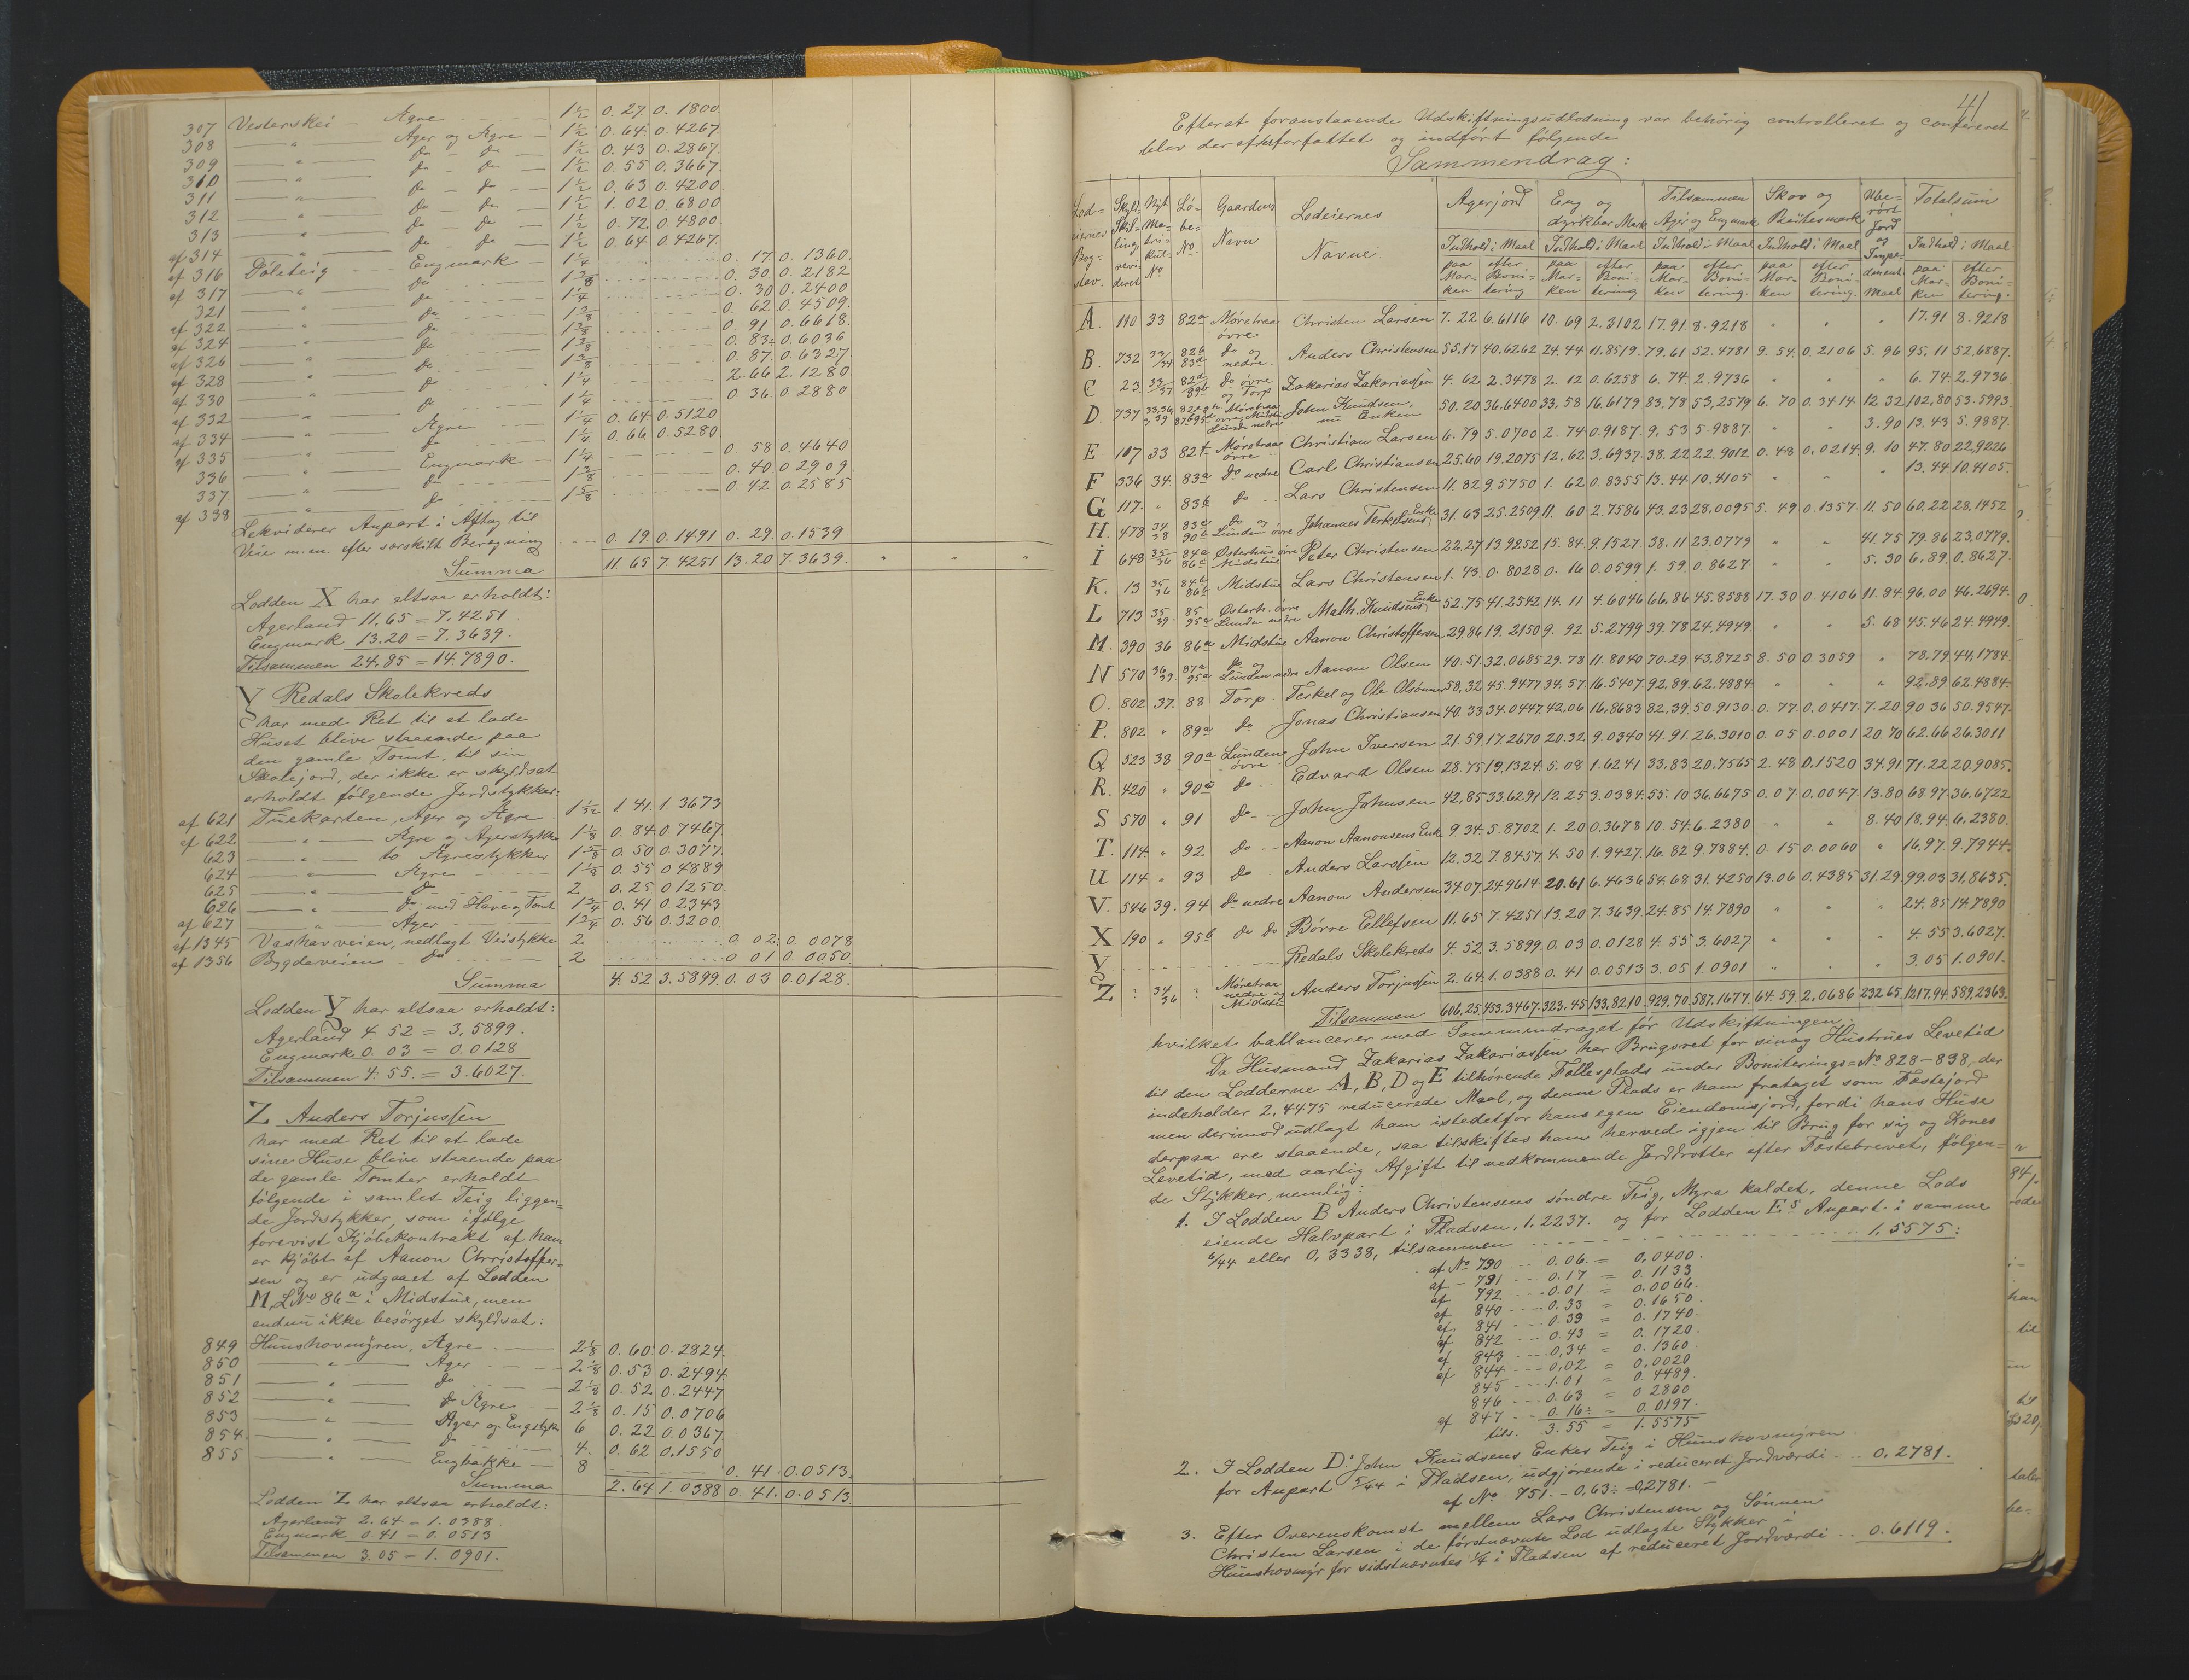 307 Vesterskei — Agre 1 1/2 0. 27 0. 1800.
308 — " — Ager og Agre 1 1/2 0. 64. 0. 4267.
309 — " — do – do 1 1/2 0. 43 0. 2867.
310 — " — do – do 1 1/2 0. 55 0. 3667.
311 — " — do – do 1 1/2 0. 63 0. 4200.
312 — " — do – do 1 1/2 1. 02 0. 6800
313 — " — do do 1 1/2 0. 72 0. 4800.
af 314 — " — do do 1 1/2 0. 64 0. 4267.
af 316 Döleteig — Engmark 1 1/4 0. 17. 0. 1360.
af 317 — " — do 1 3/8 0. 30 0. 2182
321 — " — do 1 1/4 0. 30 0. 2400
af 322 — " — do 1 3/8 0. 62 0. 4509.
af 324 — " — do 1 3/8 0. 91 0. 6618.
af 326 — " — do 1 3/8 0. 83 0. 6036
af 328 — " — do 1 3/8 0. 87. 0. 6327
af 330 — " — do 1 1/4 2. 66 2. 1280
af 332 — " — do 1 1/4 0. 36. 0. 2880
af 334 — " — Agre 1 1/4 0. 64. 0. 5120
af 335 — " — do 1 1/4 0. 66 0. 5280.
336 — " — Engmark 1 1/4 0. 58 0. 4640
337 — " — do 1 3/8 0. 40. 0. 2909.
af 338 — " — do 1 5/8 0. 42 0. 2585
Lekviderer Anpart i Aftag til
Veie m.m. efter særskilt Beregning 0. 19. 0. 1491 0. 29. 0. 1539.
Summa 11. 65 7. 4251 13. 20 7. 3639. " " "
Lodden X har altsaa erholdt:
Agerland 11. 65 = 7. 4251
Engmark 13. 20 = 7. 3639.
Tilsammen 24. 85 = 14. 7890.
Y Redals Skolekreds
har med Ret til at lade
Huset blive staaende paa
den gamle Tomt, til sin
Skolejord, der ikke er skyldsat
erholdt følgende Jordstykker:
af 621 Tuekarten, Ager og Agre 1 1/32 1 41. 1. 3673
af 622 — " — Agre og Agerstykke 1 1/8 0. 84. 0. 7467.
623 — " — to Agrestykker 1 5/8 0. 50 0. 3077.
624 — " — Agre 1 1/8 0. 55 0 4889
625 — " — do 2 0. 25 0 1250.
626 — " — do med Have og Tomt 1 3/4 0. 41 0. 2343
af 627 — " — Ager 1 3/4 0. 56 0. 3200
af 1345 Vaskarveien, nedlagt Veistykke 2 0. 02. 0. 0078
af 1356 Bygdeveien do 2 0 01 0. 0050.
Summa 4. 52 3. 5899. 0. 03 0. 0128.
Lodden Y har altsaa erholdt:
Agerland 4. 52 = 3. 5899.
Engmark 0. 03 = 0. 0128
Tilsammen 4. 55. = 3. 6027.
Z Anders Torjusſen
har med Ret til at lade
sine Huse blive staaende paa
de gamle Tomter erholdt
følgende i samlet Teig liggen=
de Jordstykker, som ifølge
forevist Kjöbekontrakt af ham
er kjöbt af Aanon Christoffer=
sen og er udgaaet af Lodden
M, LNo 86a i Midstue, men
endnu ikke besörget skyldsat:
849 Hunshovmyren, Agre 2 1/8 0. 60 0. 2824.
850 — " — Ager 2 1/8 0. 53 0. 2494
851 — " — do 2 1/8 0. 52 0. 2447
852 — " — do Agre 2 1/8 0. 15 0. 0706
853 — " — Ager og Engstyk 6 0. 22 0. 0367.
854 — " — do 4. 0. 62 0. 1550
855 — " — Engbakke 8 0. 41 0. 0513.
Summa 2. 64 1. 0388 0. 41. 0. 0513.
Lodden Z har altsaa erholdt:
Agerland 2. 64 = 1. 0388.
Engmark 0. 41 = 0. 0513
Tilsammen 3. 05 = 1. 0901.
41
Efterat foranstaaende Udskiftningsudlodning var behörig controlleret og confereret
blev derefter forfattet og indfört følgende
Sammendrag:
Lod= eiernes Bog= stav. Skyld Skil= ling reví= deret Nyt Ma= tri= kul= No Lö= be= No Gaardens Navn Lodeiernes Navne. Agerjord Eng og dyrkbar Mark Tilsammen Ager og Engmark Skov og Beitesmark Ube= rört Jord og Impe= diment Maal Totalsum
Indhold i Maal Indhold i Maal Indhold i Maal Indhold i Maal Indhold i Maal
paa Mar= ken efter Boni= tering paa Mar= ken efter Boni= tering paa Mar= ken efter Boni= tering. paa Mar= ken efter Boni= tering. paa Mar= ken efter Boni= tering.
A. 110 33 82a Møretraa övre Christen Larsen 7. 22 6. 6116 10. 69 2. 3102 17. 91 8. 9218 " " " 17. 91 8. 9218
B. 732 33/34 82b 83d do og nedre Anders Christensen 55. 17 40. 6262 24. 44 11. 8519. 79. 61 52. 4781 9. 54. 0. 2106 5. 96 95. 11 52. 6887.
C 23. 33/37 82d 89b do övre og Torp Zakarias Zakariasſen 4. 62 2. 3478 2. 12 0. 6258 6. 74. 2. 9736 " " " 6. 74. 2. 9736
D. 737 33,36 39 Møretraa övre, Midstue Lunde nedre John Knudsen, nu Enken 50. 20 36. 6400 33. 58 16. 6179 83. 78 53. 2579 6. 70 0. 3414. 12 32 102. 80 53. 5993.
E 107 33 82f Møretraa övre Christian Larsen 6. 79 5. 0700 2. 74 0. 9187. 9. 53 5. 9887 " " 3. 90 13. 43 5. 9887.
F 336 34 83a do nedre Carl Christiansen 25. 60 19. 2075 12. 62 3. 6937. 38. 22 22. 9012 0. 48 0. 0214. 9. 10 47. 80 22. 9226
G 117. " 83b do Lars Christensen 11. 82 9. 5750 1. 62 0. 8355 13. 44 10. 4105 " " " 13. 44 10. 4105.
H. 478 34 38 83c 90b do og Lunden övre Johannes Terkelsens Enke 31. 63 25. 2509 11. 60 2. 7586 43. 23 28. 0095 5. 49 0. 1357. 11. 50 60. 22 28. 1452
I 648 35 36 84a 86c Østerhus övre Midstue Peter Christensen 22. 27 13. 9252 15. 84. 9. 1527. 38. 11 23. 0779 " " 41. 75 79. 86 23. 0779.
K. 13 35 36 84b 86b Midstue Lars Christensen 1. 43. 0. 8028 0. 16 0. 0599 1. 59. 0. 8627. " " 5. 30 6. 89. 0. 8627.
L 713 35. 39. 85. 95c Østerh. övre Lunde nedre Math. Knudsens Enke 52. 75 41. 2542 14. 11 4. 6046 66. 86 45. 8588 17. 30 0. 4106 11. 84 96. 00 46. 2694.
M. 390 36 86a Midstue Aanon Christoffersen 29. 86 19. 2150 9. 92 5. 2799 39. 78 24. 4949. " " 5. 68 45. 46 24. 4949.
N 570 36. 39. 87a 95a do og Lunden nedre Aanon Olsen 40. 51. 32. 0685 29. 78 11. 8040 70. 29. 43. 8725 8. 50 0. 3059 " 78. 79 44. 1784.
O. 802 37. 88 Torp Terkel og Ole Olsönner 58. 32 45. 9477 34. 57. 16. 5407 92. 89. 62. 4884. " " " 92. 89 62. 4884.
P. 802 " 89a do Jonas Christiansen 40. 33 34. 0447. 42. 06 16. 8683 82. 39. 50. 9130 0. 77 0. 0417. 7. 20 90 36 50. 9547.
Q 523 38 90a Lunden övre John Iversen 21. 59 17. 2670 20. 32 9. 0340 41. 91. 26. 3010 0. 05 0. 0001 20. 70 62. 66 26. 3011
R. 420 " 90c do Edvard Olsen 28. 75 19. 1324. 5. 08 1. 6241 33. 83 20. 7565 2. 48 0. 1520 34. 91 71. 22 20. 9085.
S 570 " 91 do John Johnsen 42. 85 33. 6291 12 25 3. 0384. 55. 10 36. 6675 0. 07 0. 0047. 13. 80 68. 97. 36. 6722
T. 114. " 92 do Aanon Aanonsens Enke 9. 34. 5. 8702 1. 20 0. 3678 10. 54. 6. 2380 " " 8. 40 18. 94. 6. 2380.
U 114 " 93 do Anders Larsſen 12. 32 7. 8457. 4. 50 1. 9427. 16. 82 9. 7884. 0. 15 0. 0060 " 16. 97. 9. 7944.
V. 546 39. 94 do nedre Aanon Andersen 34 07 24. 9614. 20. 61 6. 4636 54. 68 31. 4250 13. 06 0. 4385 31. 29. 99. 03 31. 8635.
X 190 " 95b do do Börre Ellefsen 11. 65 7. 4251 13. 20 7. 3639. 24. 85 14. 7890 " " " 24. 85 14. 7890
Y Redals Skolekreds 4. 52 3. 5899. 0. 03 0. 0128 4. 55 3. 6027 " " " 4. 55 3. 6027.
Z ? 34/36 ? Møretraa nedre og Midstu Anders Torjusſen 2. 64. 1. 0388 0. 41 0. 0513 3. 05 1. 0901 " " " 3. 05 1. 0901.
Tilsammen 606. 25. 453. 3467. 323. 45 133. 8210. 929. 70. 587. 1677. 64. 59. 2. 0686 232 65 1217. 94. 589. 2363.
hvilket ballancerer med Sammendraget för Udskiftningen.
Da Husmand Zakarias Zakariasſen har Brugsret for sin og Hustrues Levetid
til den Lodderne A, B, D og E tilhörende Fællesplads under Boniterings=No 828–838, der
indeholder 2,4475 reducerede Maal, og denne Plads er ham frataget som Fæstejord
men derimod udlagt ham istedetfor hans egen Eiendomsjord, fordi hans Huse
derpaa ere staaende, saa tilskiftes ham herved igjen til Brug for sig og Kones
Levetid, mod aarlig Afgift til vedkommende Jorddrotter efter Fæstebrevet, følgen=
de Stykker, nemlig:
1. I Lodden B Anders Christensens söndre Teig, Myra kaldet, denne Lods
eiende Halvpart i Pladsen, 1. 2237. og for Lodden Es Anpart i samme
6/44 eller 0, 3338, tilsammen 1. 5575:
af No 790 0. 06. = 0. 0400.
af – 791 0. 17 = 0. 1133
af 792 0. 01 = 0. 0066.
af 840 0. 33 = 0. 1650.
af 841 0. 39 = 0. 1740.
af 842 0. 43 = 0. 1720.
af 843 0. 34 = 0. 1360.
af 844 0. 02 = 0. 0020
845 1. 01 = 0. 4489.
846 0. 63 = 0 2800
af 847 0. 16 = 0. 0197.
tils. 3. 55 = 1. 5575
2. I Lodden D: John Knudsens Enkes Teig i Hunshovmyren
for Anpart 5/44 i Pladsen, udgjörende i reduceret Jordværdi 0. 2781.
af No 751. – 0. 63 = 0,2781. –
3. Efter Overenskomst mellem Lars Christensen og Sönnen
Christen Larsen i de förstnævnte Lod udlagte Stykker i
Hunshovmyr for sidstnævntes 1/4 i Pladsen af reduceret Jordværdi 0. 6119.